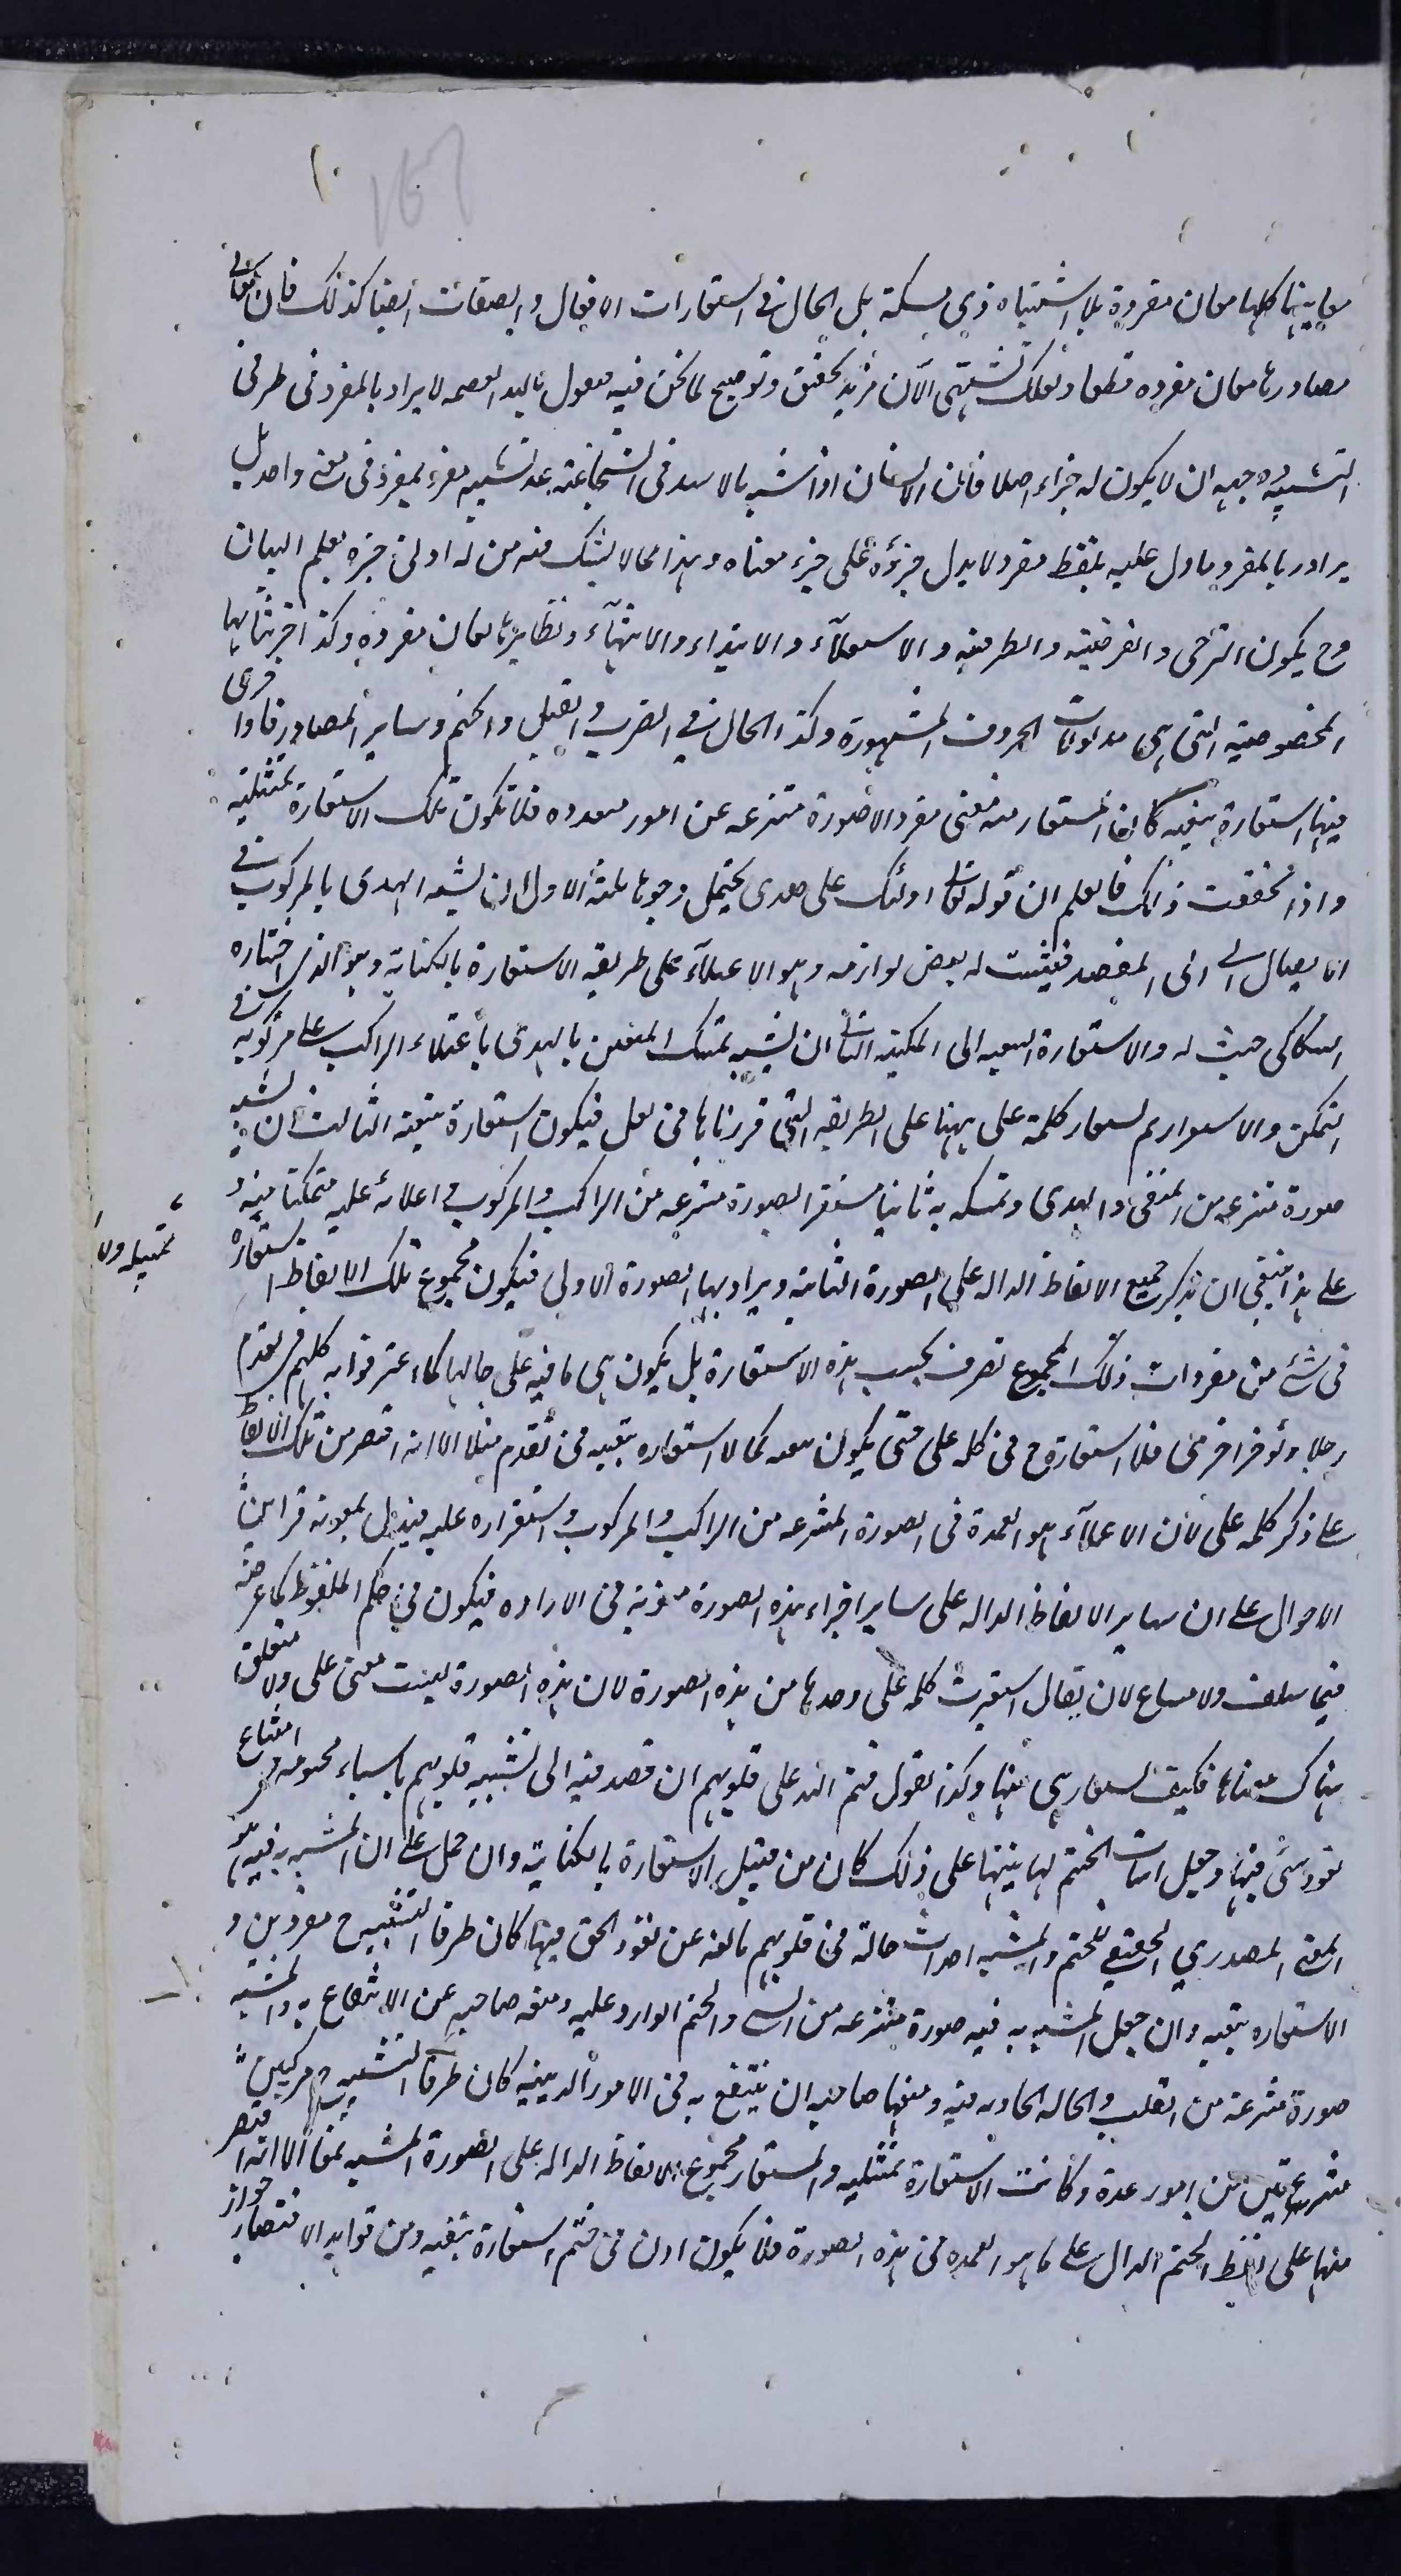 معانيها كلها معان مفردة بلا اشتباه ذي مسكة بل الحال في استعارات الافعال والصفات ايضا كذلك فان معاني
مصادرها معان مفرده قطعا ولعلك تشتهي الآن مزيد تحقيق وتوضيح لما نحن فيه فنقول وبالله العصمه لا يراد بالمفرد في طرفي
التشبيه وجهه ان لا يكون له جزء اصلا فان الانسان اذا شبه بالاسد في الشجاعة عد تشبيه مفرد بمفرد في معنى واحد بل
يراد بالمفرد ما دل عليه بلفظ مفرد لا يدل جزؤه على جزء معناه وهذا مما لا يشك فيه من له ادنى خبره بعلم البيان
وح يكون الترجى والغرضية والظرفية والاستعلآء والابتداء والانتهآء ونظايرها معان مفردة وكذا جزئياتها
المخصوصة التي هي مدلولات الحروف المشهورة وكذا الحال في الضرب والقتل والختم وساير المصادر فاذا جرى
فيها استعارة تبعيه كان المستعار منه معنى مفردا لا صورة منتزعه عن امور متعدده فلا تكون تلك الاستعارة تمثيليه
واذا تحققت ذلك فاعلم ان قوله تعالى اولئك على هدى يحتمل وجوها ثلثة الاول ان يشبه الهدى بالمركوب في
الايصال الى المقصد فيثبت له بعض لوازمه وهو الاعتلآء على طريقة الاستعارة بالكناية وهو الذى اختاره
السكاكى حيث رد والاستعارة التبعيه الى المكنية الثانى ان يشبه تمسك المتقين بالهدى باعتلاء الراكب على مركوبه في
التمكن والاستقرار ثم يستعار كلمة على ههنا على الطريقة التي قررناها في لعل فيكون استعارة تبعية الثالث ان يشبه
صورة منتزعه من المتقى والهدى وتمسكه به ثابتا مستقرا بصورة منتزعه من الراكب والمركوب واعتلائه عليه متمكنا منه و
على هذا ينبغي ان يذكر جميع الالفاظ الداله على الصورة الثانية ويراد بها الصورة الاولى فيكون مجموع تلك الالفاظ استعارة
تمثيليه ولا
في شئ من مفردات ذلك المجموع تصرف بحسب هذه الاستعارة بل يكون هي باقيه على حالها كما اعترفوا به كلهم في تقدم
رجلا وتؤخر اخرى فلا استعارة ح في كلمه على حتى يكون تبعيه كما لا استعاره تبعيه في تقدم مثلا الا انه اقتصر من تلك الالفاظ
على ذكر كلمه على لان الاعتلآء هو العمدة في الصورة المنتزعه من الراكب والمركوب واستقراره عليه فيدل بمعونة قراين
الاحوال على ان ساير الالفاظ الداله على ساير اجزاء هذه الصورة منويه في الاراده فيكون في حكم الملفوظ كما عرفته
فيما سلف ولا مساغ لان يقال استعيرت كلمه على وحدها من هذه الصورة لان هذه الصورة ليست معنى على ولا متعلق
هناك معناها فكيف يستعار هى منها وكذا نقول ختم الله على قلوبهم ان قصد فيه الى تشبيه قلوبهم باشياء مختومه في امتناع
نفوذ شئ فيها وجعل اثبات الختم لها تنبيها على ذلك كان من قبيل الاستعارة بالكناية وان حمل على ان المشبه به فيه هو
المعنى المصدري الحقيقي للختم والمشبه احداث حالة في قلوبهم مانعه عن نفوذ الحق فيها كان طرفا التشبيه ح مفردين و
الاستعاره تبعيه وان جعل المشبه به فيه صورة منتزعه من الشئ والختم الوارد عليه ومنعه صاحبه عن الانتفاع به والمشبه
صورة منتزعة من القلب والحاله الحادثه فيه ومنعها صاحبه ان ينتفع به في الامور الدينيه كان طرفا التشبيه مركبين
منتزعين من امور عدة وكانت الاستعارة تمثيليه والمستعار مجموع الالفاظ الداله على الصورة المشبه بها الا انه اقتصر
منها على لفظ الختم الدال على ما هو العمده في هذه الصورة فلا يكون اذن في ختم استعارة تبعيه ومن فوايد الاقتصار جواز